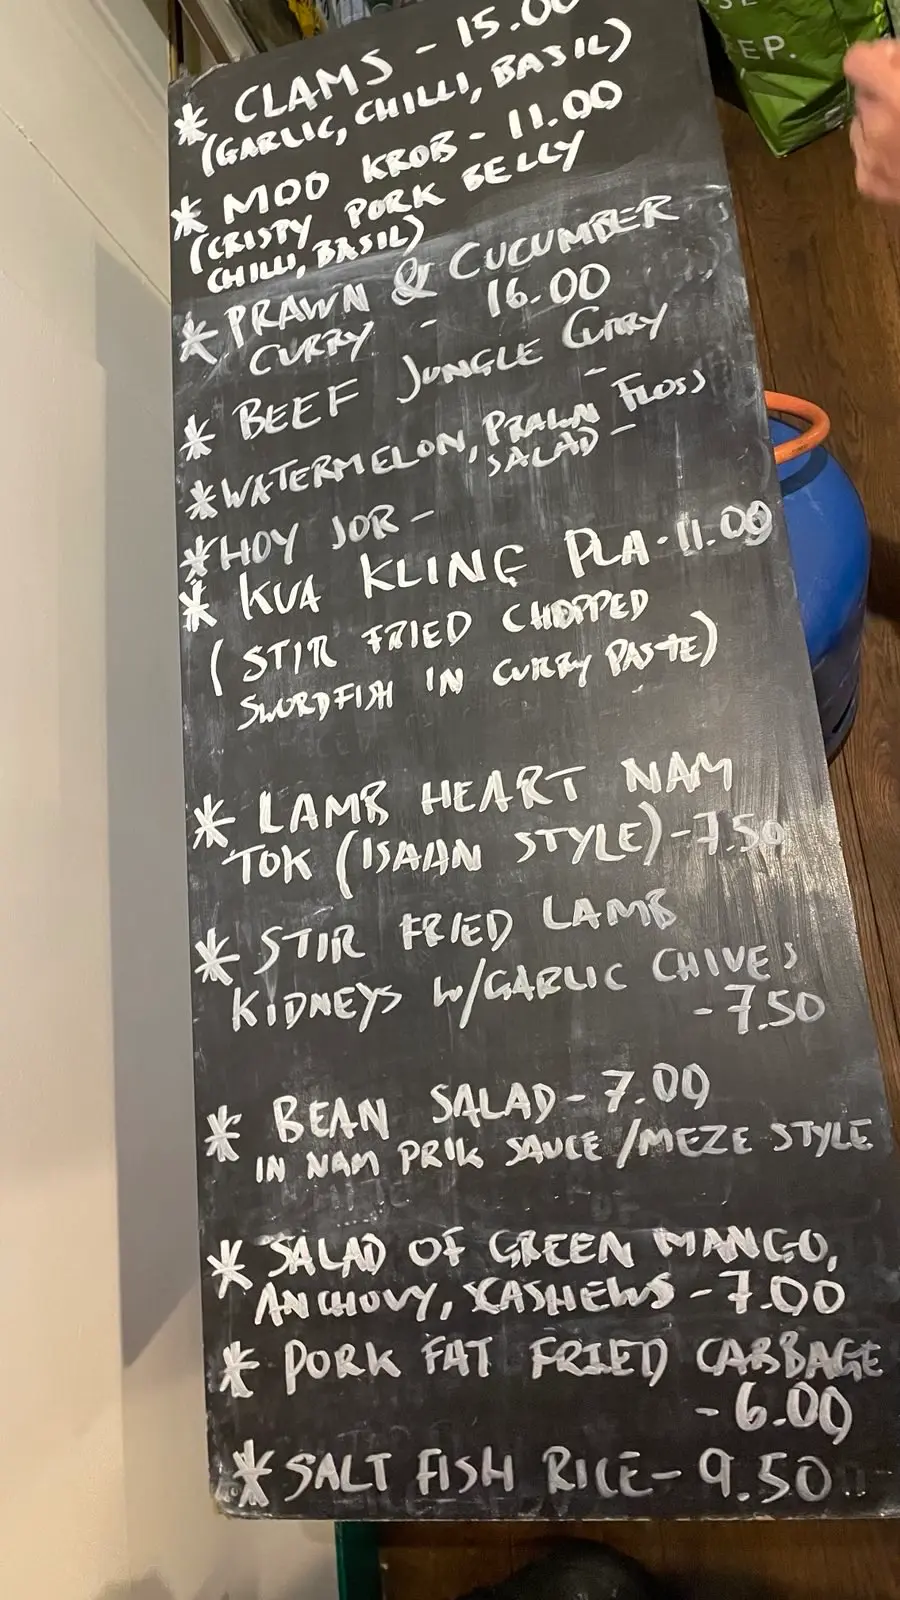 * CLAMS - 15.00
(GARLIC, CHILLI, BASIL)
* MOO KROB - 11.00
(CRISTY PORK BELLY
CHILLI, BASIL)
* PRAWN & CUCUMBER
CURRY - 16.00
* BEEF JUNGLE CURRY -
* WATERMELON, PRAWN FLOSS
SALAD -
* HOY JOR -
* KUA KLING PLA - 11.00
(STIR FRIED CHOPPED
SWORDFISH IN CURRY PASTE)
* LAMB HEART NAM
TOK (ISAAN STYLE) - 7.50
* STIR FRIED LAMB
KIDNEYS W/GARLIC CHIVES
- 7.50
* BEAN SALAD - 7.00
IN NAM PRIK SAUCE / MEZE STYLE
* SALAD OF GREEN MANGO,
ANCHOVY, CASHEWS - 7.00
* PORK FAT FRIED CABBAGE
- 6.00
* SALT FISH RICE - 9.50
EP.